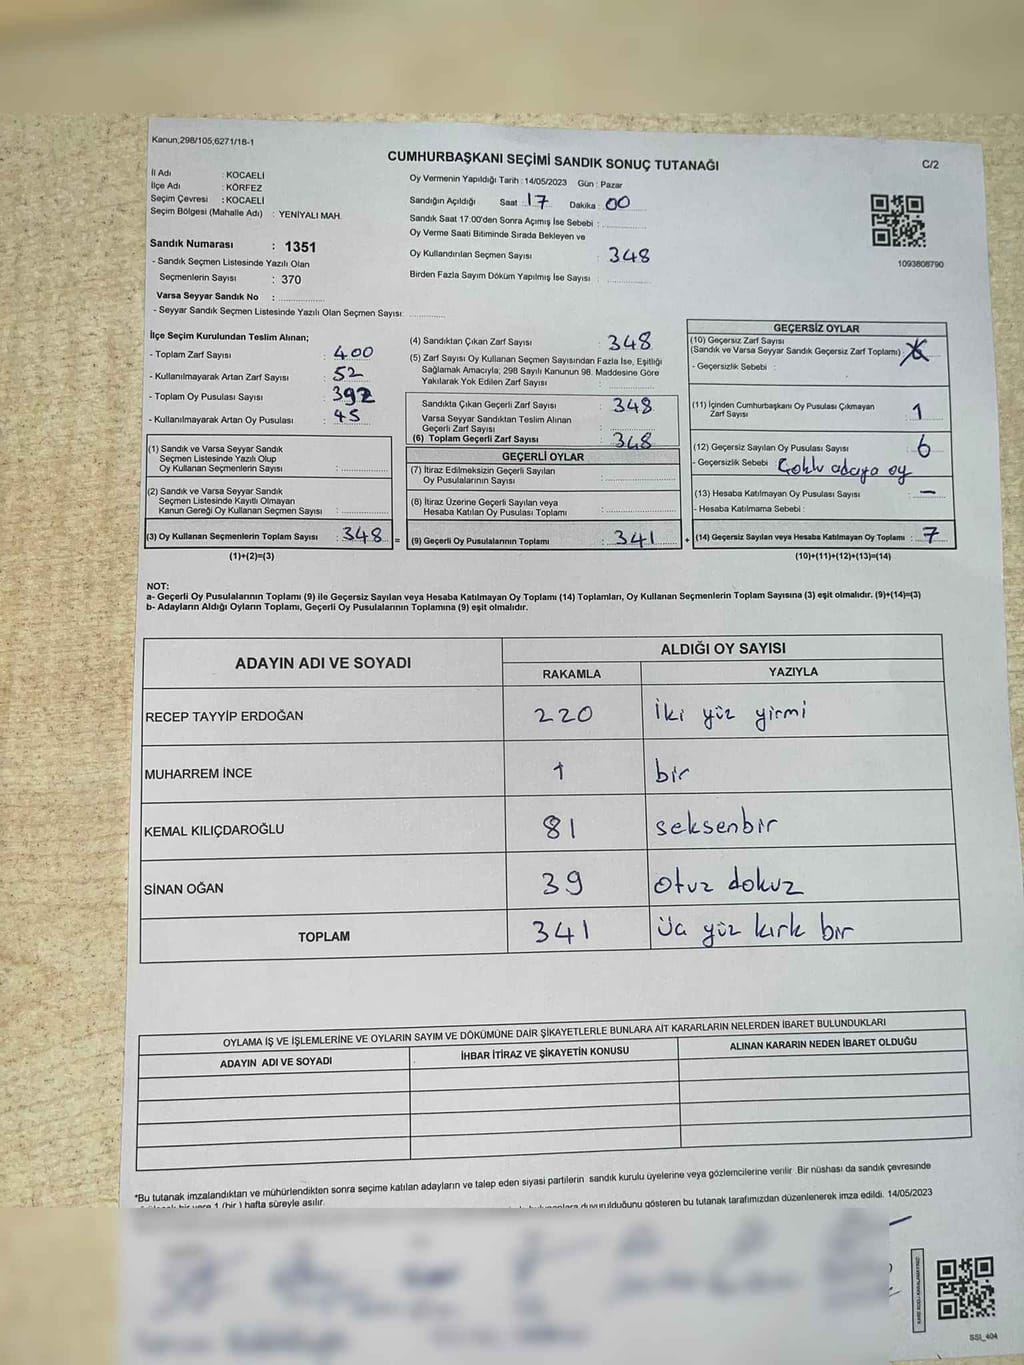 Kanun;298/105;6271/18-1
CUMHURBAŞKANI SEÇİMİ SANDIK SONUÇ TUTANAĞI
C/2
İl Adı : KOCAELİ
İlçe Adı : KÖRFEZ
Seçim Çevresi : KOCAELİ
Seçim Bölgesi (Mahalle Adı) : YENİYALI MAH.
Sandık Numarası : 1351
- Sandık Seçmen Listesinde Yazılı Olan
Seçmenlerin Sayısı : 370
Varsa Seyyar Sandık No :
- Seyyar Sandık Seçmen Listesinde Yazılı Olan Seçmen Sayısı:
Oy Vermenin Yapıldığı Tarih : 14/05/2023 Gün : Pazar
Sandığın Açıldığı Saat : 17 Dakika : 00
Sandık Saat 17:00'den Sonra Açımış İse Sebebi :
Oy Verme Saati Bitiminde Sırada Bekleyen ve
Oy Kullandırılan Seçmen Sayısı : 348
Birden Fazla Sayım Döküm Yapılmış İse Sayısı :
1093808790
İlçe Seçim Kurulundan Teslim Alınan;
- Toplam Zarf Sayısı : 400
- Kullanılmayarak Artan Zarf Sayısı : 52
- Toplam Oy Pusulası Sayısı : 392
- Kullanılmayarak Artan Oy Pusulası : 45
(1) Sandık ve Varsa Seyyar Sandık
Seçmen Listesinde Yazılı Olup
Oy Kullanan Seçmenlerin Sayısı :
(2) Sandık ve Varsa Seyyar Sandık
Seçmen Listesinde Kayıtlı Olmayan
Kanun Gereği Oy Kullanan Seçmen Sayısı :
(3) Oy Kullanan Seçmenlerin Toplam Sayısı : 348 =
(1)+(2)=(3)
(4) Sandıktan Çıkan Zarf Sayısı : 348
(5) Zarf Sayısı Oy Kullanan Seçmen Sayısından Fazla İse, Eşitliği
Sağlamak Amacıyla; 298 Sayılı Kanunun 98. Maddesine Göre
Yakılarak Yok Edilen Zarf Sayısı :
Sandıkta Çıkan Geçerli Zarf Sayısı : 348
Varsa Seyyar Sandıktan Teslim Alınan
Geçerli Zarf Sayısı :
(6) Toplam Geçerli Zarf Sayısı : 348
GEÇERLİ OYLAR
(7) İtiraz Edilmeksizin Geçerli Sayılan
Oy Pusulalarının Sayısı :
(8) İtiraz Üzerine Geçerli Sayılan veya
Hesaba Katılan Oy Pusulası Toplamı :
(9) Geçerli Oy Pusulalarının Toplamı : 341 +
GEÇERSİZ OYLAR
(10) Geçersiz Zarf Sayısı
(Sandık ve Varsa Seyyar Sandık Geçersiz Zarf Toplamı) :
- Geçersizlik Sebebi :
(11) İçinden Cumhurbaşkanı Oy Pusulası Çıkmayan
Zarf Sayısı : 1
(12) Geçersiz Sayılan Oy Pusulası Sayısı : 6
- Geçersizlik Sebebi : Çoklu adaya oy
(13) Hesaba Katılmayan Oy Pusulası Sayısı : –
- Hesaba Katılmama Sebebi :
(14) Geçersiz Sayılan veya Hesaba Katılmayan Oy Toplamı : 7
(10)+(11)+(12)+(13)=(14)
NOT:
a- Geçerli Oy Pusulalarının Toplamı (9) ile Geçersiz Sayılan veya Hesaba Katılmayan Oy Toplamı (14) Toplamları, Oy Kullanan Seçmenlerin Toplam Sayısına (3) eşit olmalıdır. (9)+(14)=(3)
b- Adayların Aldığı Oyların Toplamı, Geçerli Oy Pusulalarının Toplamına (9) eşit olmalıdır.
ADAYIN ADI VE SOYADI
ALDIĞI OY SAYISI
RAKAMLA YAZIYLA
RECEP TAYYİP ERDOĞAN 220 İki yüz yirmi
MUHARREM İNCE 1 bir
KEMAL KILIÇDAROĞLU 81 seksenbir
SİNAN OĞAN 39 Otuz dokuz
TOPLAM 341 Üç yüz kırk bir
OYLAMA İŞ VE İŞLEMLERİNE VE OYLARIN SAYIM VE DÖKÜMÜNE DAİR ŞİKAYETLERLE BUNLARA AİT KARARLARIN NELERDEN İBARET BULUNDUKLARI
ADAYIN ADI VE SOYADI İHBAR İTİRAZ VE ŞİKAYETİN KONUSU ALINAN KARARIN NEDEN İBARET OLDUĞU
*Bu tutanak imzalandıktan ve mühürlendikten sonra seçime katılan adayların ve talep eden siyasi partilerin sandık kurulu üyelerine veya gözlemcilerine verilir .Bir nüshası da sandık çevresinde
bir yere 1 (bir ) hafta süreyle asılır. duyurulduğunu gösteren bu tutanak tarafımızdan düzenlenerek imza edildi. 14/05/2023
SSI_404